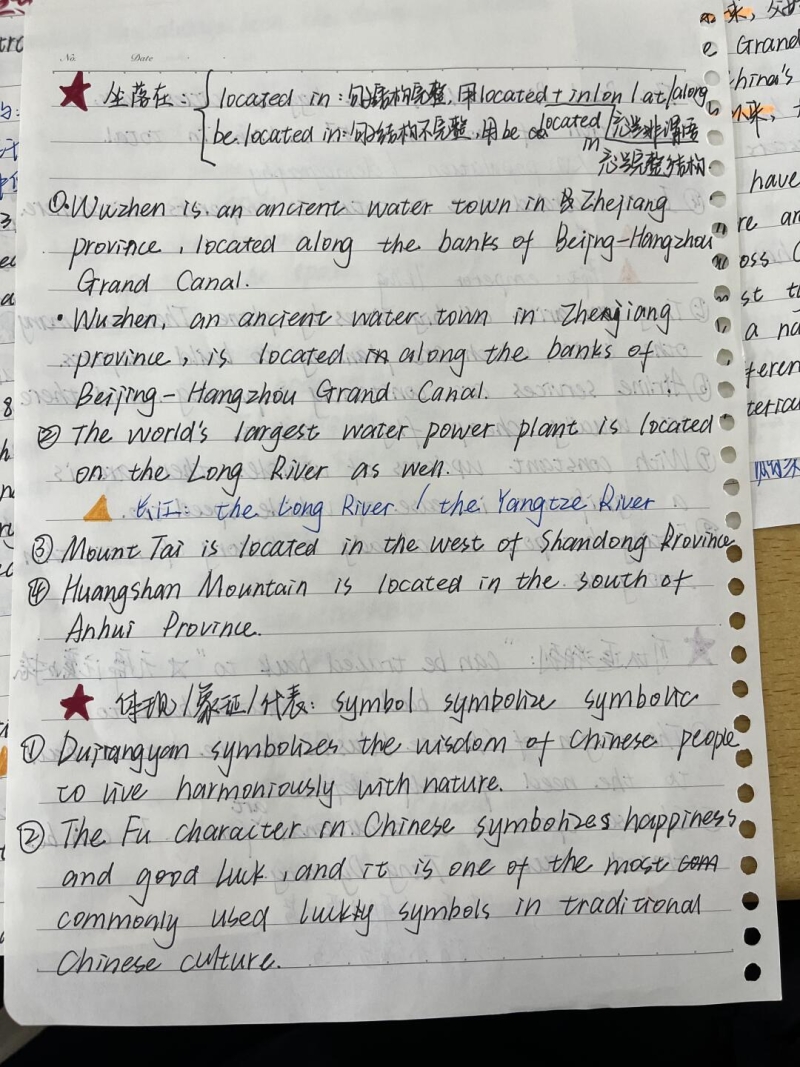 No. Date
坐落在: located in: 句子结构完整, 用located + in/on/at/along
be located in: 句子结构不完整, 用be located in
充当非谓语
充当完整结构
①. Wuzhen is an ancient water town in Zhejiang
province, located along the banks of Beijng-Hangzhou
Grand Canal.
· Wuzhen, an ancient water town in Zhenjiang
province, is located along the banks of
Beijing-Hangzhou Grand Canal.
② The world's largest water power plant is located
on the Long River as well.
长江: the Long River / the Yangtze River
③ Mount Tai is located in the west of Shandong Province
④ Huangshan Mountain is located in the south of
Anhui Province.
体现/象征/代表: symbol symbolize symbolic
① Dujiangyan symbolizes the wisdom of Chinese people
to live harmoniously with nature.
② The Fu character in Chinese symbolizes happiness
and good luck, and it is one of the most
commonly used lucky symbols in traditional
Chinese culture.